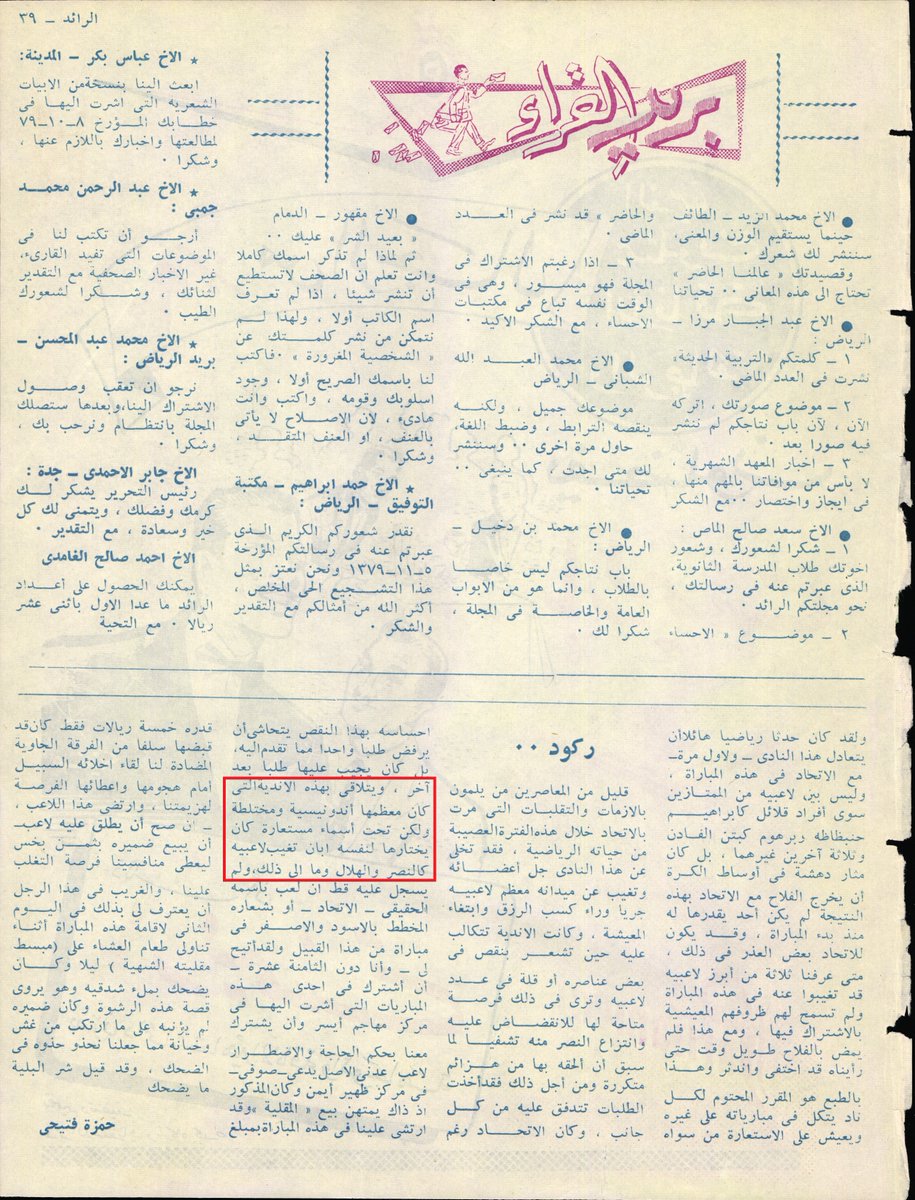 الرائد ـ ٣٩
بريد القراء
● الاخ محمد الزيد ـ الطائف
حينما يستقيم الوزن والمعنى،
سننشر لك شعرك ٠
وقصيدتك « عالمنا الحاضر »
تحتاج الى هذه المعانى ٠٠ تحياتنا
● الاخ عبد الجبار مرزا ـ
الرياض :
١ ـ كلمتكم «التربية الحديثة»
نشرت فى العدد الماضى ٠
٢ ـ موضوع صورتك ، اتركه
الآن ، لأن باب نتاجكم لم ننشر
فيه صورا بعد ٠
٣ ـ اخبار المعهد الشهرية ،
لا بأس من موافاتنا بالمهم منها ،
فى ايجاز واختصار ٠٠ مع الشكر
● الاخ سعد صالح الماص :
١ ـ شكرا لشعورك ، وشعور
اخوتك طلاب المدرسة الثانوية،
الذى عبرتم عنه فى رسالتك ،
نحو مجلتكم الرائد ٠
٢ ـ موضوع « الاحساء
والحاضر » قد نشر فى العدد
الماضى ٠
٣ ـ اذا رغبتم الاشتراك فى
المجلة فهو ميسور ، وهى فى
الوقت نفسه تباع فى مكتبات
الاحساء ، مع الشكر الاكيد ٠
● الاخ محمد العبد الله
الشبانى ـ الرياض
موضوعك جميل ، ولكنه
ينقصه الترابط ، وضبط اللغة،
حاول مرة اخرى ٠٠ وسننشر
لك متى اجدت ، كما ينبغى ٠٠
تحياتنا ٠
● الاخ محمد بن دخيل ـ
الرياض :
باب نتاجكم ليس خاصا
بالطلاب ، وانما هو من الابواب
العامة والخاصة فى المجلة ،
شكرا لك ٠
● الاخ مقهور ـ الدمام
« بعيد الشر » عليك ٠٠
ثم لماذا لم تذكر اسمك كاملا
وانت تعلم ان الصحف لاتستطيع
أن تنشر شيئا ، اذا لم تعرف
اسم الكاتب أولا ، ولهذا لم
نتمكن من نشر كلمتك عن
« الشخصية المغرورة » ٠فاكتب
لنا باسمك الصريح أولا ، وجود
اسلوبك وقومه ، واكتب وانت
هادىء ، لان الاصلاح لا يأتى
بالعنف ، او العنف المتقد ،
وشكرا ٠
★ الاخ حمد ابراهيم ـ مكتبة
التوفيق ـ الرياض :
نقدر شعوركم الكريم الذى
عبرتم عنه فى رسالتكم المؤرخة
٥ـ١١ـ١٣٧٩ ونحن نعتز بمثل
هذا التشجيع الحى المخلص ،
اكثر الله من أمثالكم مع التقدير
والشكر ٠
★ الاخ عباس بكر ـ المدينة:
ابعث الينا بنسخةمن الابيات
الشعرية التى اشرت اليها فى
خطابك المؤرخ ٨ـ١٠ـ٧٩
لمطالعتها واخبارك باللازم عنها ،
وشكرا ٠
★ الاخ عبد الرحمن محمد
جمبى :
أرجو أن تكتب لنا فى
الموضوعات التى تفيد القارىء،
غير الاخبار الصحفية مع التقدير
لثنائك ، وشكرا لشعورك
الطيب ٠
★ الاخ محمد عبد المحسن ـ
بريد الرياض :
نرجو ان تعقب وصول
الاشتراك الينا،وبعدها ستصلك
المجلة بانتظام ونرحب بك ،
وشكرا ٠
الاخ جابر الاحمدى ـ جدة :
رئيس التحرير يشكر لك
كرمك وفضلك ، ويتمنى لك كل
خير وسعادة ، مع التقدير ٠
الاخ احمد صالح الغامدى
يمكنك الحصول على أعداد
الرائد ما عدا الاول بأثنى عشر
ريالا ٠ مع التحية
ولقد كان حدثا رياضيا هائلاأن
يتعادل هذا النادى ـ ولاول مرةـ
مع الاتحاد فى هذه المباراة ،
وليس بين لاعبيه من الممتازين
سوى أفراد قلائل كابراهيم
حنبظاظه ربرهوم كبتن الفادن
وثلاثة آخرين غيرهما ، بل كان
مثار دهشة فى أوساط الكرة
أن يخرج الفلاح مع الاتحاد بهذه
النتيجة لم يكن أحد يقدرها له
منذ بدء المباراة ، وقد يكون
للاتحاد بعض العذر فى ذلك ،
متى عرفنا ثلاثة من أبرز لاعبيه
قد تغيبوا عنه فى هذه المباراة
ولم تسمح لهم ظروفهم المعيشية
بالاشتراك فيها ، ومع هذا فلم
يمض بالفلاح طويل وقت حتى
رأيناه قد اختفى واندثر وهذا
بالطبع هو المقرر المحتوم لكل
ناد يتكل فى مبارياته على غيره
ويعيش على الاستعارة من سواه
ركود ٠٠
قليل من المعاصرين من يلمون
بالازمات والتقلبات التى مرت
بالاتحاد خلال هذه الفترة العصيبة
من حياته الرياضية ، فقد تخلى
عن هذا النادى جل أعضائه
وتغيب عن ميدانه معظم لاعبيه
جريا وراء كسب الرزق وابتغاء
المعيشة ، وكانت الاندية تتكالب
عليه حين تشعر بنقص فى
بعض عناصره أو قلة فى عدد
لاعبيه وترى فى ذلك فرصة
متاحة لها للانقضاض عليه
وانتزاع النصر منه تشفيا لما
سبق أن ألحقه بها من هزائم
متكررة ومن أجل ذلك فقدأخذت
الطلبات تتدفق عليه من كل
جانب ، وكان الاتحاد رغم
احساسه بهذا النقص يتحاشى‌أن
يرفض طلبا واحدا مما تقدم‌اليه،
بل كان يجيب عليها طلبا بعد
آخر ، ويتلاقى بهذه الاندية‌التى
كان معظمها أندونيسية ومختلطة
ولكن تحت أسماء مستعارة كان
يختارها لنفسه ابان تغيب‌لاعبيه
كالنصر والهلال وما الى ذلك،ولم
يسجل عليه قط ان لعب باسمه
الحقيقى ـ الاتحاد ـ أو بشعاره
المخطط بالاسود والاصفر فى
مباراة من هذا القبيل ولقدأتيح
لى ـ وأنا دون الثامنة عشرة ـ
أن أشترك فى احدى هذه
المباريات التى أشرت اليها فى
مركز مهاجم أيسر وان يشترك
معنا بحكم الحاجة والاضطرار
لاعب/ عدنى‌الاصل‌يدعى‌ـصوفى‌ـ
فى مركز ظهير أيمن وكان‌المذكور
اذ ذاك يمتهن بيع « المقلية »وقد
ارتشى علينا فى هذه المباراة‌بمبلغ
قدره خمسة ريالات فقط كان‌قد
قبضها سلفا من الفرقة الجاوية
المضادة لنا لقاء اخلائه السبيل
أمام هجومها واعطائها الفرصة
لهزيمتنا ، وارتضى هذا اللاعب ،
ـ ان صح أن يطلق عليه لاعب‌ـ
أن يبيع ضميره بثمن بخس
ليعطى منافسينا فرصة التغلب
علينا ، والغريب فى هذا الرجل
أن يعترف لى بذلك فى اليوم
الثانى لاقامة هذه المباراة أثناء
تناولى طعام العشاء على (مبسط
مقليته الشهية ) ليلا وكان
يضحك بملء شدقيه وهو يروى
قصة هذه الرشوة وكان ضميره
لم يؤنبه على ما ارتكب من غش
وخيانة مما جعلنا نحذو حذوه فى
الضحك ، وقد قيل شر البلية
ما يضحك
حمزة فتيحى